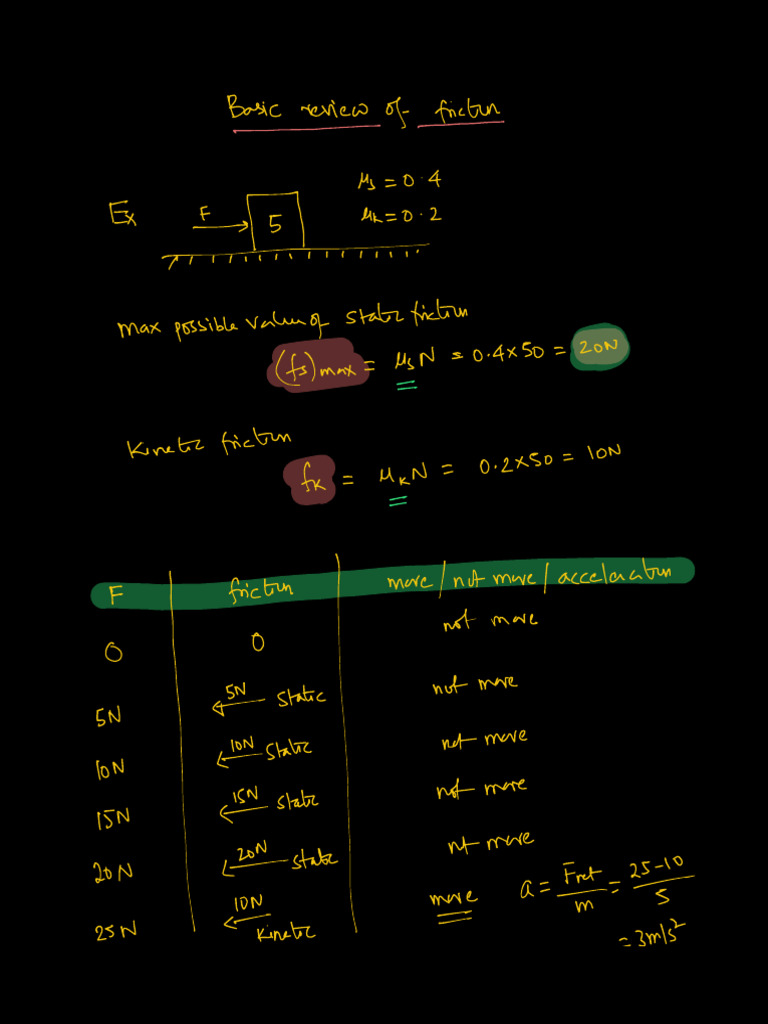 Basic review of friction
μs = 0.4
Ex F 5 μk = 0.2
max possible value of static friction
(fs)max = μsN = 0.4×50 = 20N
Kinetic friction
fk = μkN = 0.2×50 = 10N
F friction move / not move / acceleration
0 0 not move
5N 5N static not move
10N 10N static not move
15N 15N static not move
20N 20N static not move
25N 10N Kinetic move a = Fnet/m = 25-10/5
= 3m/s²